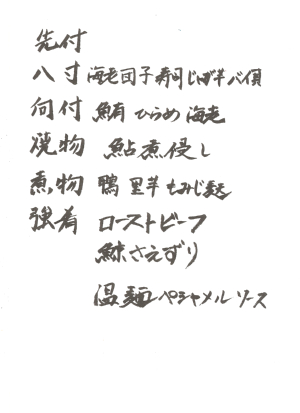 先付
八寸 海老団子 寿司 じゃが芋 バ貝
向付 鮪 ひらめ 海老
焼物 鮎煮浸し
煮物 鴨 里芋 もみじ麩
強肴 ローストビーフ
鯨さえずり
温麺 ベシャメルソース